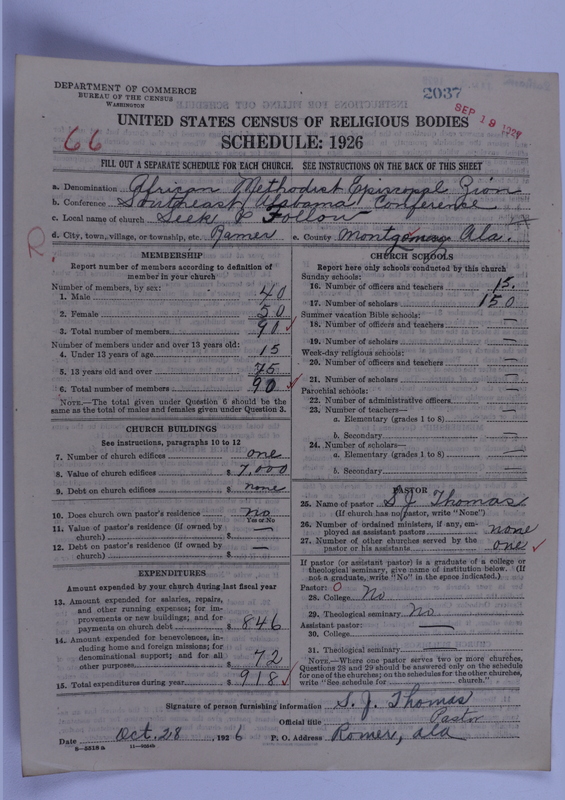 DEPARTMENT OF COMMERCE
BUREAU OF THE CENSUS
WASHINGTON
2037
SEP 19 1927
66
UNITED STATES CENSUS OF RELIGIOUS BODIES
SCHEDULE: 1926
FILL OUT A SEPARATE SCHEDULE FOR EACH CHURCH. SEE INSTRUCTIONS ON THE BACK OF THIS SHEET
a. Denomination African Methodist Episcopal Zion
b. Conference Southeast Alabama Conference
c. Local name of church Seek & Follow
d. City, town, village, or township, etc. Ramer e. County Montgomery Ala.
R.
MEMBERSHIP
Report number of members according to definition of
member in your church
Number of members, by sex:
1. Male 40
2. Female 50
3. Total number of members 90
Number of members under and over 13 years old:
4. Under 13 years of age 15
5. 13 years old and over 75
6. Total number of members 90
NOTE.—The total given under Question 6 should be the
same as the total of males and females given under Question 3.
CHURCH BUILDINGS
See instructions, paragraphs 10 to 12
7. Number of church edifices one
8. Value of church edifices $ 7,000
9. Debt on church edifices $ none
10. Does church own pastor's residence? no
Yes or No
11. Value of pastor's residence (if owned by
church) $ —
12. Debt on pastor's residence (if owned by
church) $ —
EXPENDITURES
Amount expended by your church during last fiscal year
13. Amount expended for salaries, repairs,
and other running expenses; for im-
provements or new buildings; and for
payments on church debt $ 846
14. Amount expended for benevolences, in-
cluding home and foreign missions; for
denominational support; and for all
other purposes $ 72
15. Total expenditures during year $ 918
CHURCH SCHOOLS
Report here only schools conducted by this church
Sunday schools:
16. Number of officers and teachers 15.
17. Number of scholars 150
Summer vacation Bible schools:
18. Number of officers and teachers —
19. Number of scholars —
Week-day religious schools:
20. Number of officers and teachers —
21. Number of scholars —
Parochial schools:
22. Number of administrative officers —
23. Number of teachers—
a. Elementary (grades 1 to 8) —
b. Secondary —
24. Number of scholars—
a. Elementary (grades 1 to 8) —
b. Secondary —
PASTOR
25. Name of pastor S J Thomas
(If church has no pastor, write "None")
26. Number of ordained ministers, if any, em-
ployed as assistant pastors none
27. Number of other churches served by the
pastor or his assistants one
If pastor (or assistant pastor) is a graduate of a college or
theological seminary, give name of institution below. (If
not a graduate, write "No" in the space indicated.)
Pastor: O
28. College No
29. Theological seminary No
Assistant pastor:
30. College —
31. Theological seminary —
NOTE.—Where one pastor serves two or more churches,
Questions 28 and 29 should be answered only on the schedule
for one of the churches; on the schedules for the other churches,
write "See schedule for church."
Signature of person furnishing information S. J. Thomas
Official title Pastor
Date Oct. 28, 1926 P. O. Address Romer, Ala
8—5518 a